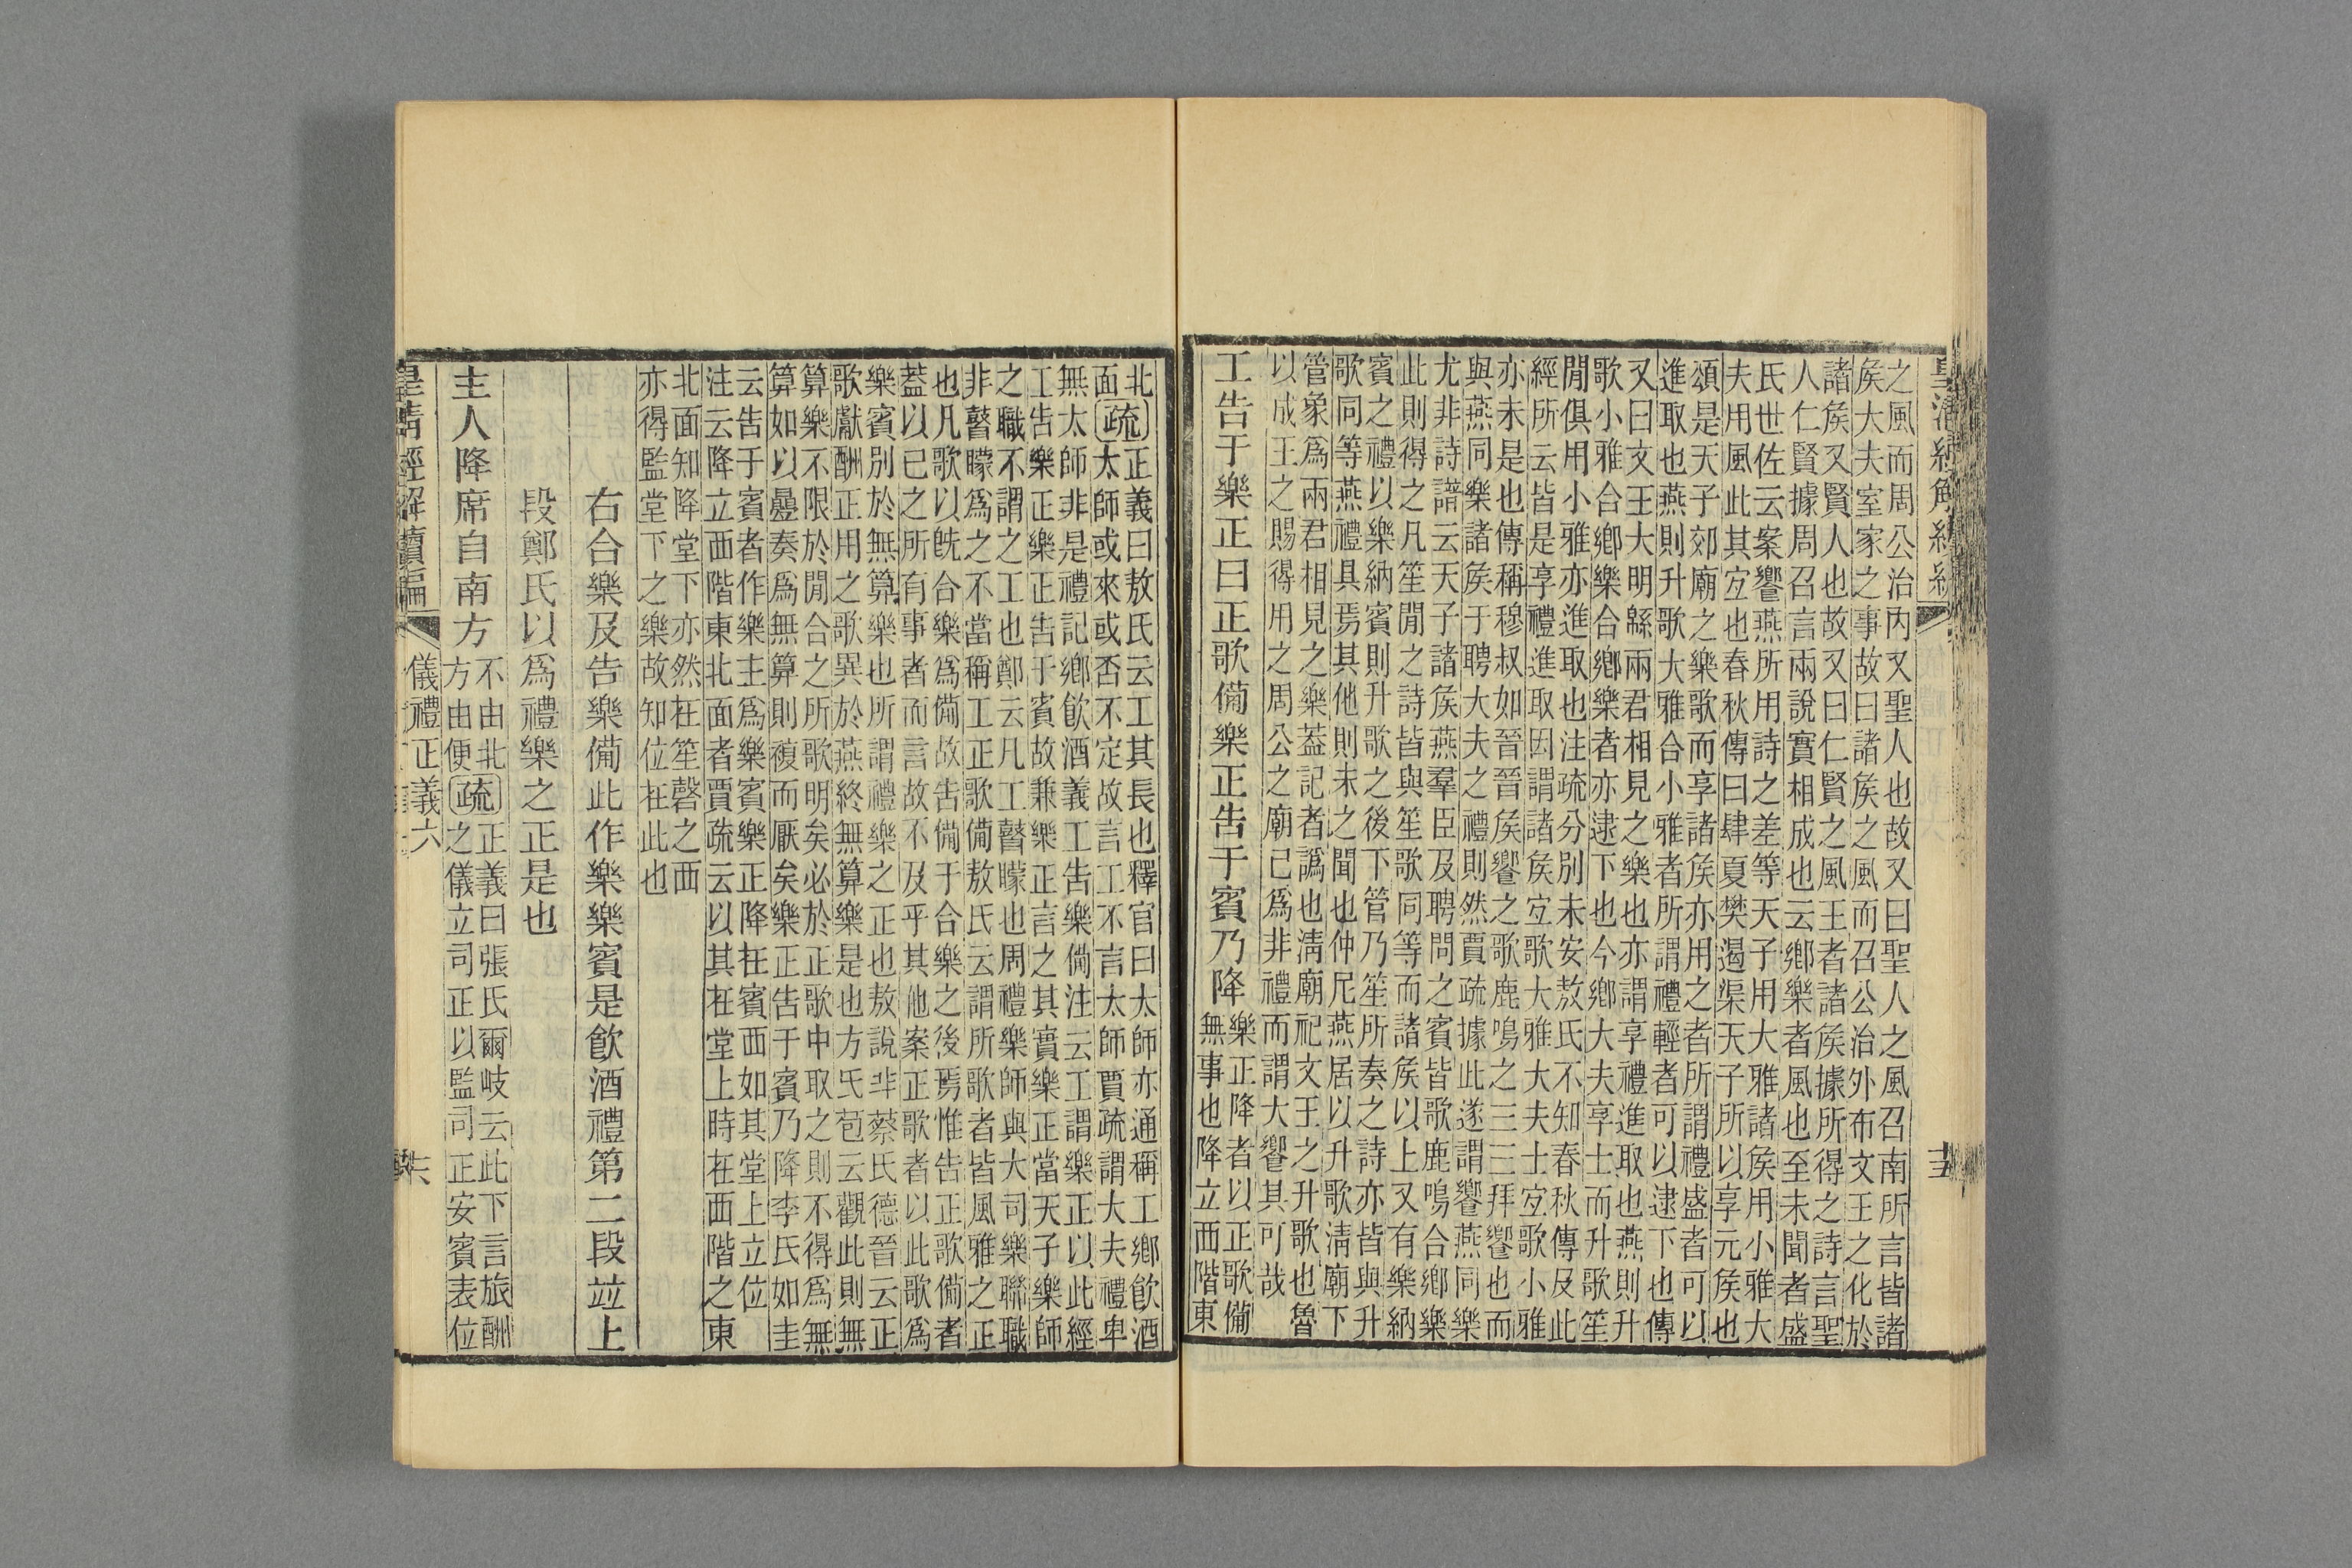 皇清經解續編
十五
之風而周公治內又聖人也故又曰聖人之風召南所言皆諸
矦大夫室家之事故曰諸矦之風而召公治外布文王之化於
諸矦又賢人也故又曰仁賢之風王者諸矦據所得之詩言聖
人仁賢據周召言兩說實相成也云鄉樂者風也至未聞者盛
氏世佐云案饗燕所用詩之差等天子用大雅諸矦用小雅大
夫用風此其宐也春秋傳曰肆夏樊遏渠天子所以享元矦也
頌是天子郊廟之樂歌而享諸矦亦用之者所謂禮盛者可以
進取也燕則升歌大雅合小雅者所謂禮輕者可以逮下也傳
又曰文王大明緜兩君相見之樂也亦謂享禮進取也燕則升
歌小雅合鄉樂合鄉樂者亦逮下也今鄉大夫享士而升歌笙
閒俱用小雅亦進取也注疏分別未安敖氏不知春秋傳及此
經所云皆是享禮進取因謂諸矦宐歌大雅大夫士宐歌小雅
亦未是也傳稱穆叔如晉晉矦饗之歌鹿鳴之三三拜饗也而
與燕同樂諸矦于聘大夫之禮則然賈疏據此遂謂饗燕同樂
尤非詩譜云天子諸矦燕羣臣及聘問之賓皆歌鹿鳴合鄉樂
此則得之凡笙閒之詩皆與笙歌同等而諸矦以上又有樂納
賓之禮以樂納賓則升歌之後下管乃笙所奏之詩亦皆與升
歌同等燕禮具焉其他則未之聞也仲尼燕居以升歌淸廟下
管象爲兩君相見之樂葢記者譌也淸廟祀文王之升歌也魯
以成王之賜得用之周公之廟已爲非禮而謂大饗其可哉
工告于樂正曰正歌備樂正告于賓乃降
樂正降者以正歌備
無事也降立西階東
北
面疏
正義曰敖氏云工其長也釋官曰太師亦通稱工鄉飮酒
太師或來或否不定故言工不言太師賈疏謂大夫禮卑
無太師非是禮記鄉飮酒義工告樂備注云工謂樂正以此經
工告樂正樂正告于賓故兼樂正言之其實樂正當天子樂師
之職不謂之工也鄭云凡工瞽矇也周禮樂師與大司樂聯職
非瞽矇爲之不當稱工正歌備敖氏云謂所歌者皆風雅之正
也凡歌以旣合樂爲備故告備于合樂之後焉惟告正歌備者
葢以已之所有事者而言故不及乎其他案正歌者以此歌爲
樂賓別於無算樂也所謂禮樂之正也敖說非蔡氏德晉云正
歌獻酬正用之歌異於燕終無算樂是也方氏苞云觀此則無
算樂不限於閒合之所歌明矣必於正歌中取之則不得爲無
算如以曡奏爲無算則複而厭矣樂正告于賓乃降李氏如圭
云告于賓者作樂主爲樂賓樂正降在賓西如其堂上立位
注云降立西階東北面者賈疏云以其在堂上時在西階之東
北面知降堂下亦然在笙磬之西
亦得監堂下之樂故知位在此也
右合樂及告樂備此作樂樂賓是飮酒禮第二段竝上
段鄭氏以爲禮樂之正是也
主人降席自南方
不由北
方由便
疏
正義曰張氏爾岐云此下言旅酬
之儀立司正以監司正安賓表位
皇淸經解續編
儀禮正義六